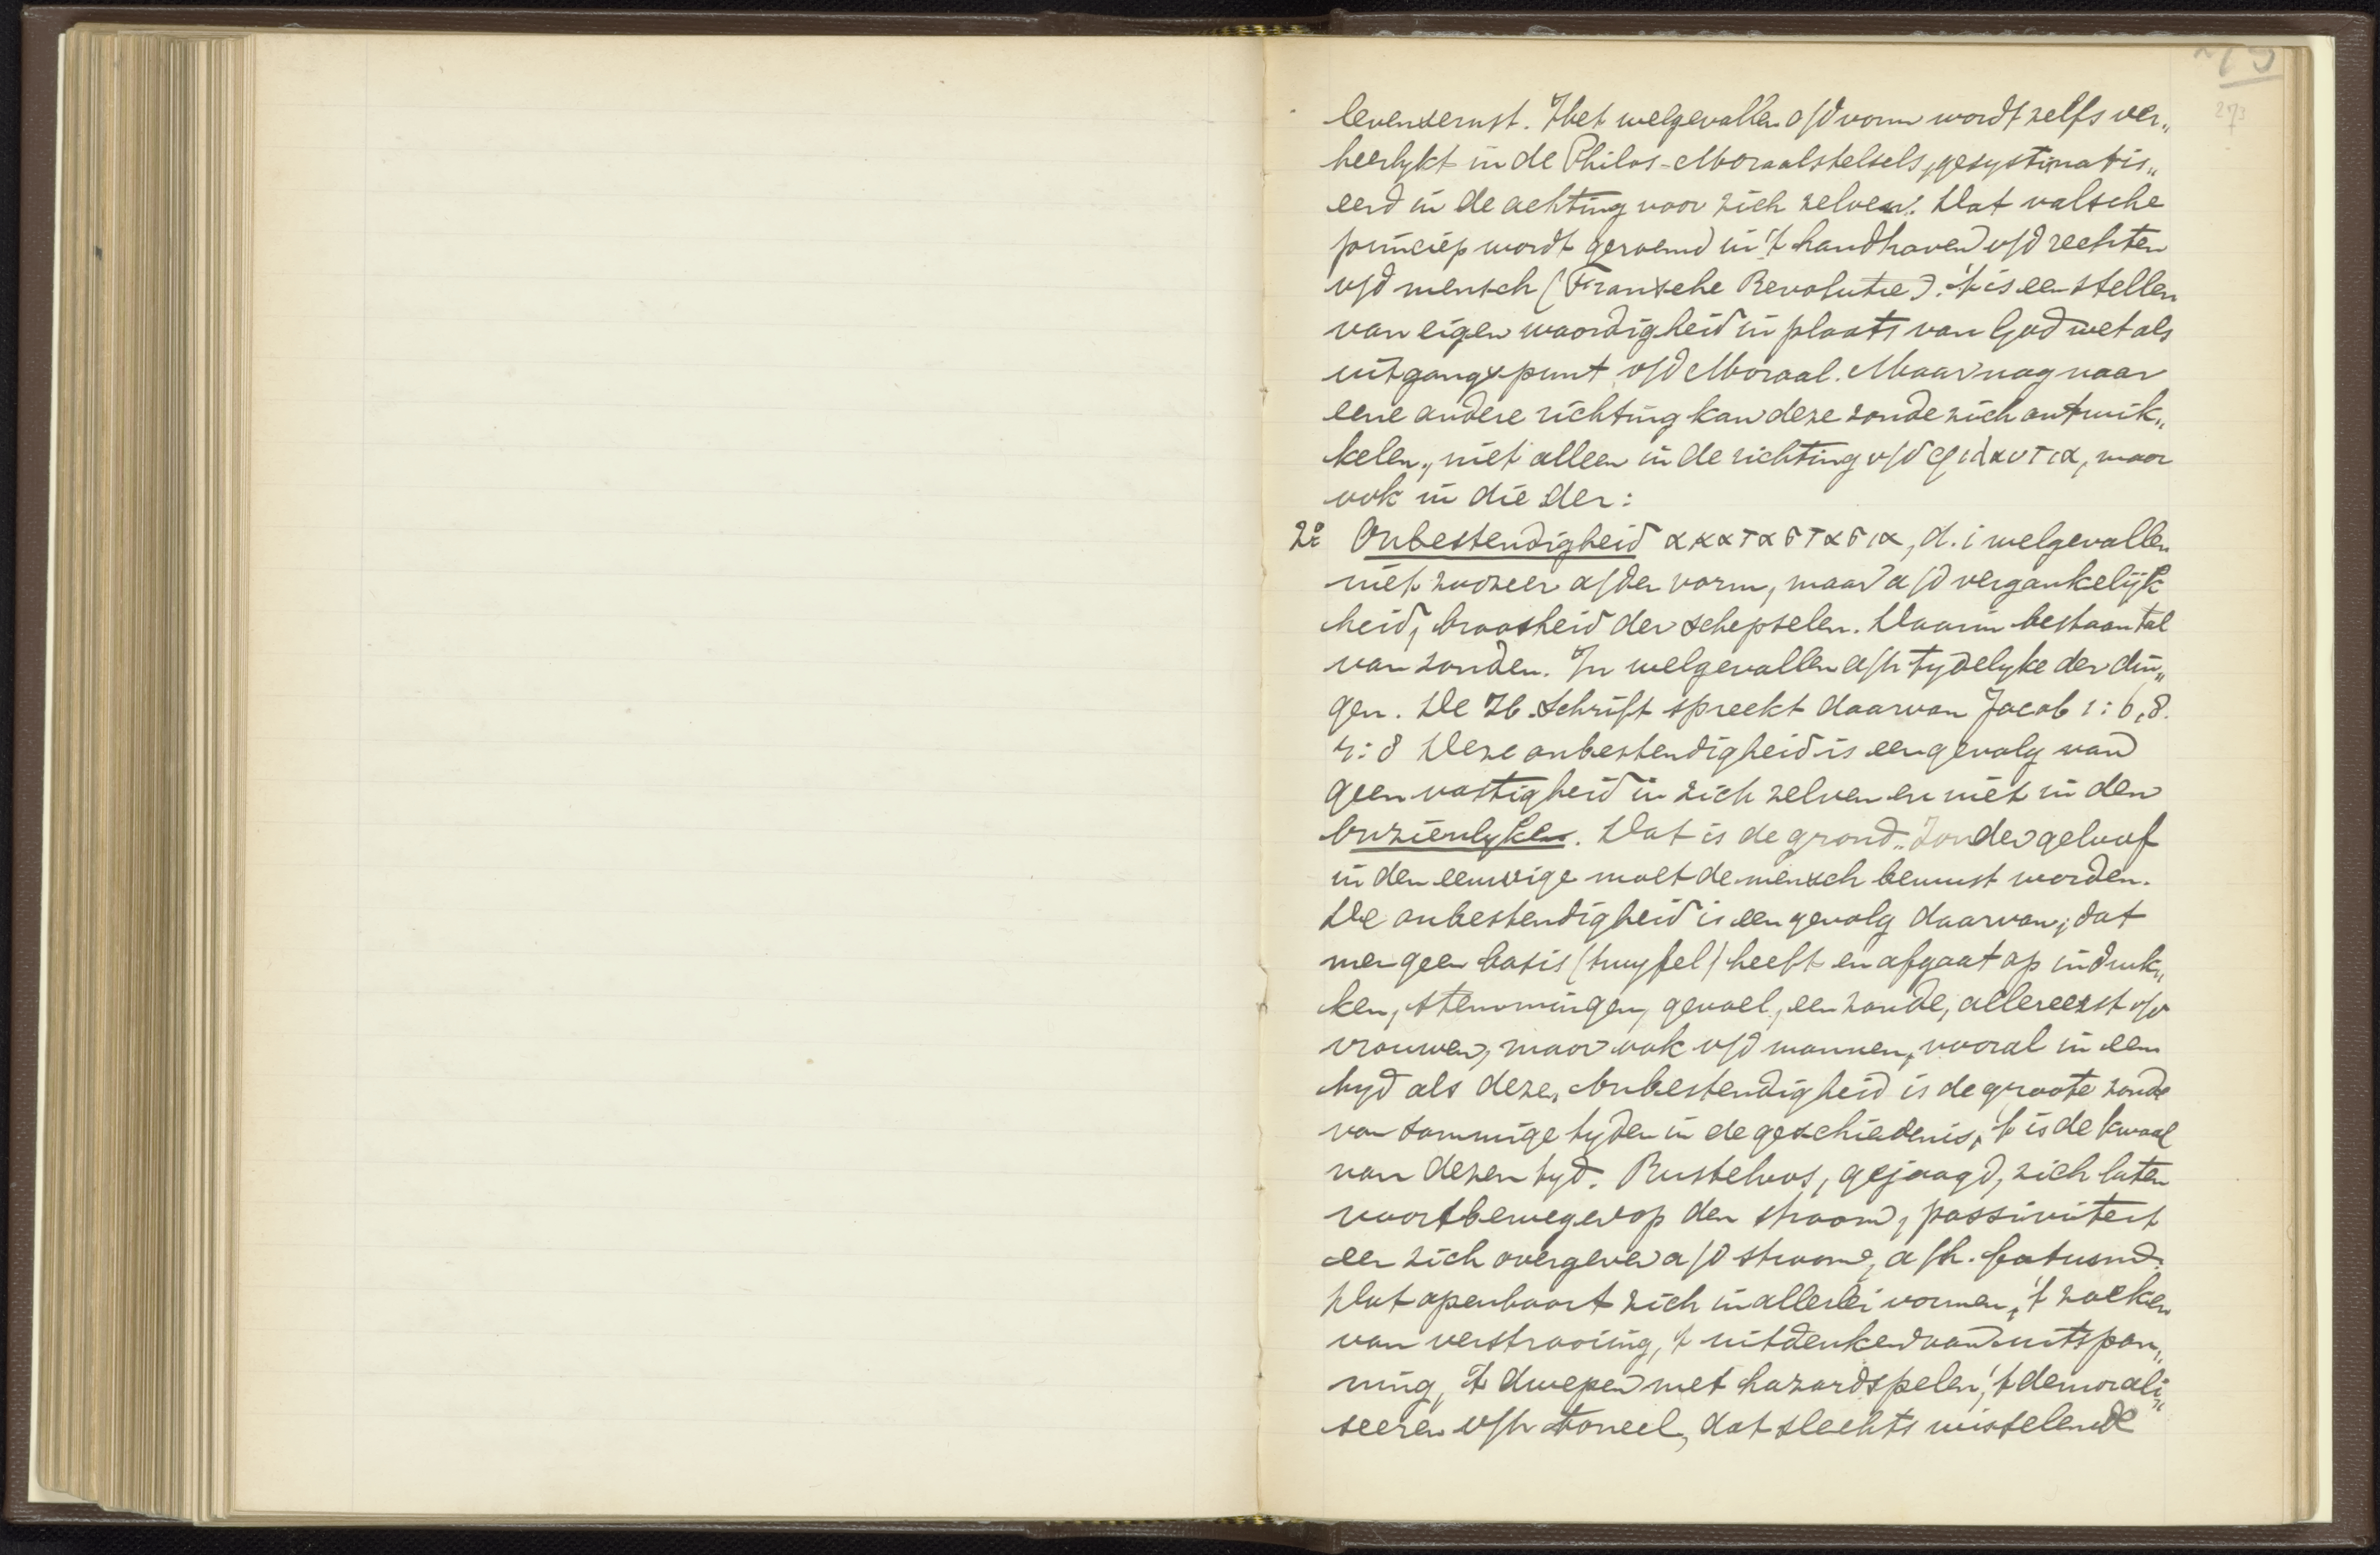 273
levensernst. Het welgevallen a/d vorm wordt zelfs ver„
heerlykt in de Philos-Moraalstelsels, gesystematis„
eerd in de achting voor zich zelven. Dat valsche
princiep wordt geroemd in 't handhaven v/d rechten
v/d mensch (Fransche Revolutie). 't is een stellen
van eigen waardigheid in plaats van God wet als
uitgangspunt v/d Moraal. Maar nog naar
eene andere richting kan deze zonde zich ontwik„
kelen, niet alleen in de richting v/d φιλαυτια, maar
ook in die der:
2º Onbestendigheid ακαταστασια, d.i welgevallen
niet zoozeer a/den vorm, maar a/d vergankelijk
heid, broosheid der schepselen. Daarin bestaan tal
van zonden. In welgevallen a/h tydelyke der din„
gen. De H. Schrift spreekt daarvan Jacob 1:6,8.
4:8 Deze onbestendigheid is een gevolg van
geen vastigheid in zich zelven en niet in den
Onzienlyken. Dat is de grond. Zonder geloof
in den eeuwige moet de mensch bewust worden.
De onbestendigheid is een gevolg daarvan, dat
men geen basis (twyfel) heeft en afgaat op indruk„
ken, stemmingen, gevoel, een zonde, allereerst v/d
vrouwen, maar ook v/d mannen, vooral in een
tyd als deze. Onbestendigheid is de groote zonde
van sommige tyden in de geschiedenis, 't is de kwaal
van dezen tyd. Rusteloos, gejaagd, zich laten
voortbewegen op den stroom, passiviteit
een zich overgeven a/d stroom, a/h. fatum.
Dat openbaart zich in allerlei vormen, 't zoeken
van verstrooiing, 't uitdenken van uitspan„
ning, 't dwepen met hazardspelen, 't demorali„
seeren v/h tooneel, dat slechts wisselende